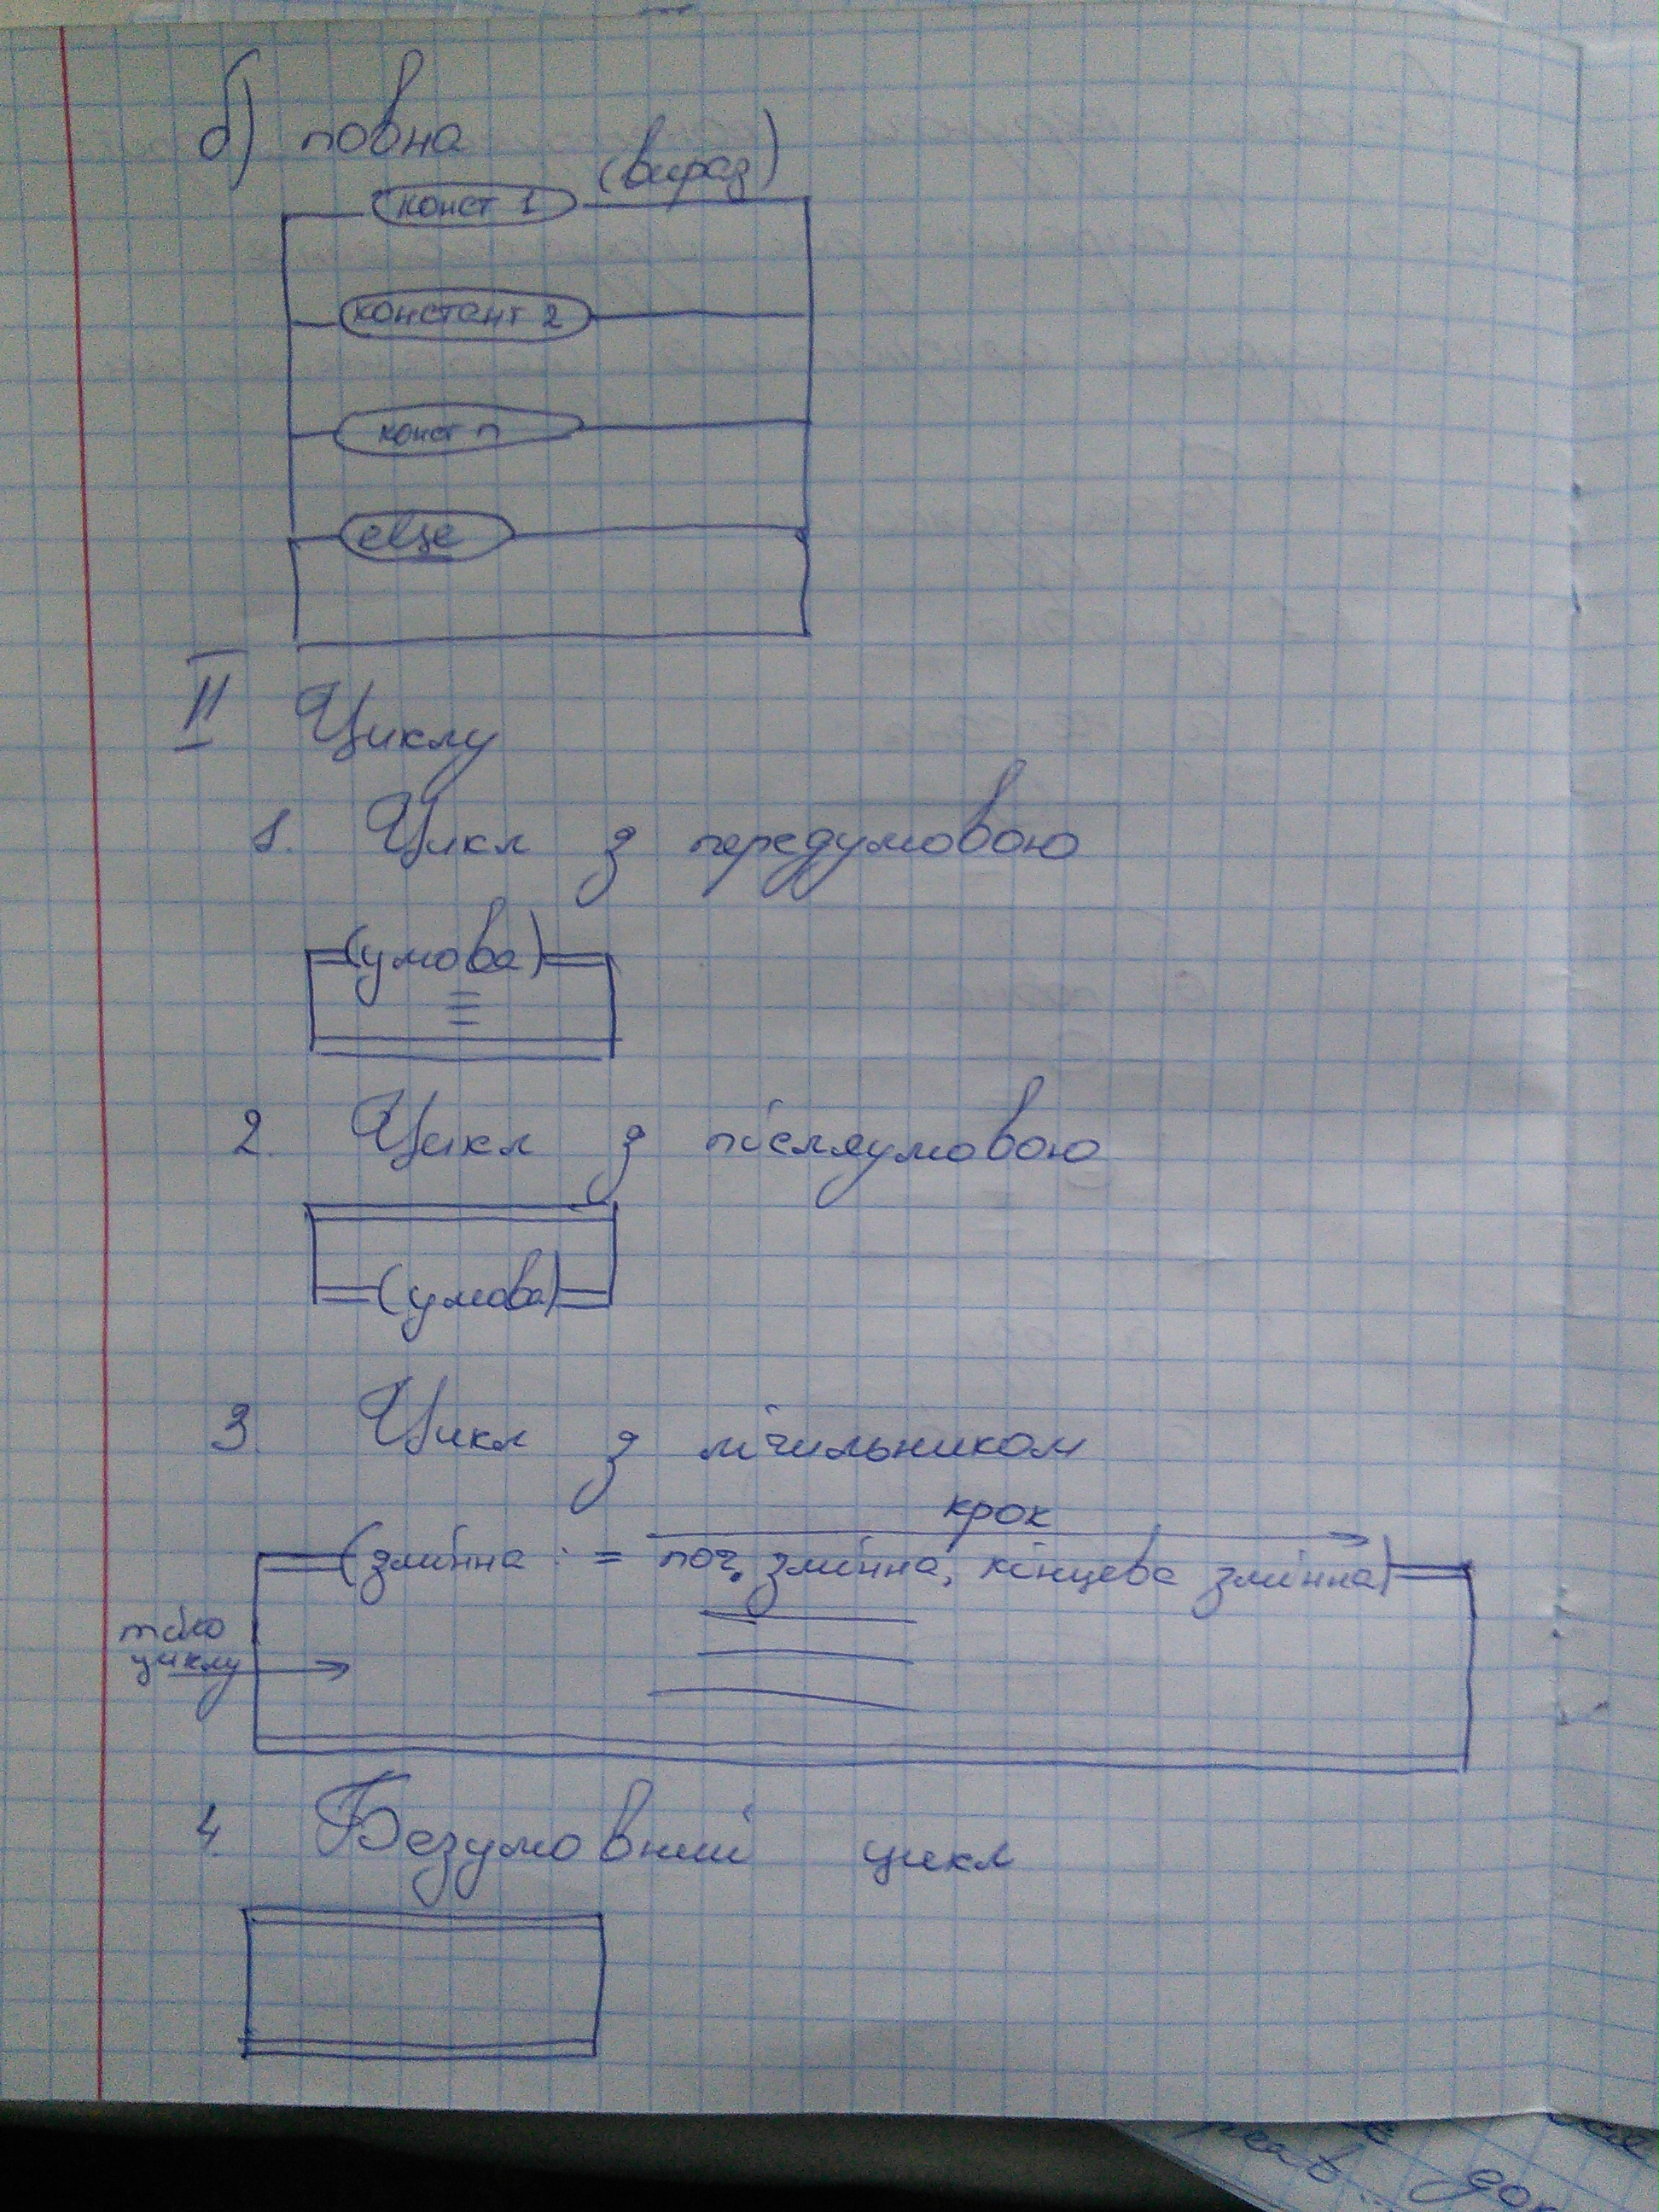 б) повна
(вираз)
конст 1
констант 2
конст n
II Циклу
1. Цикл з передумовою
(умова)
2. Цикл з післяумовою
(умова)
3. Цикл з лічильником
крок
(змінна := поч. змінна, кінцева змінна)
тіло
циклу
4. Безумовний цикл